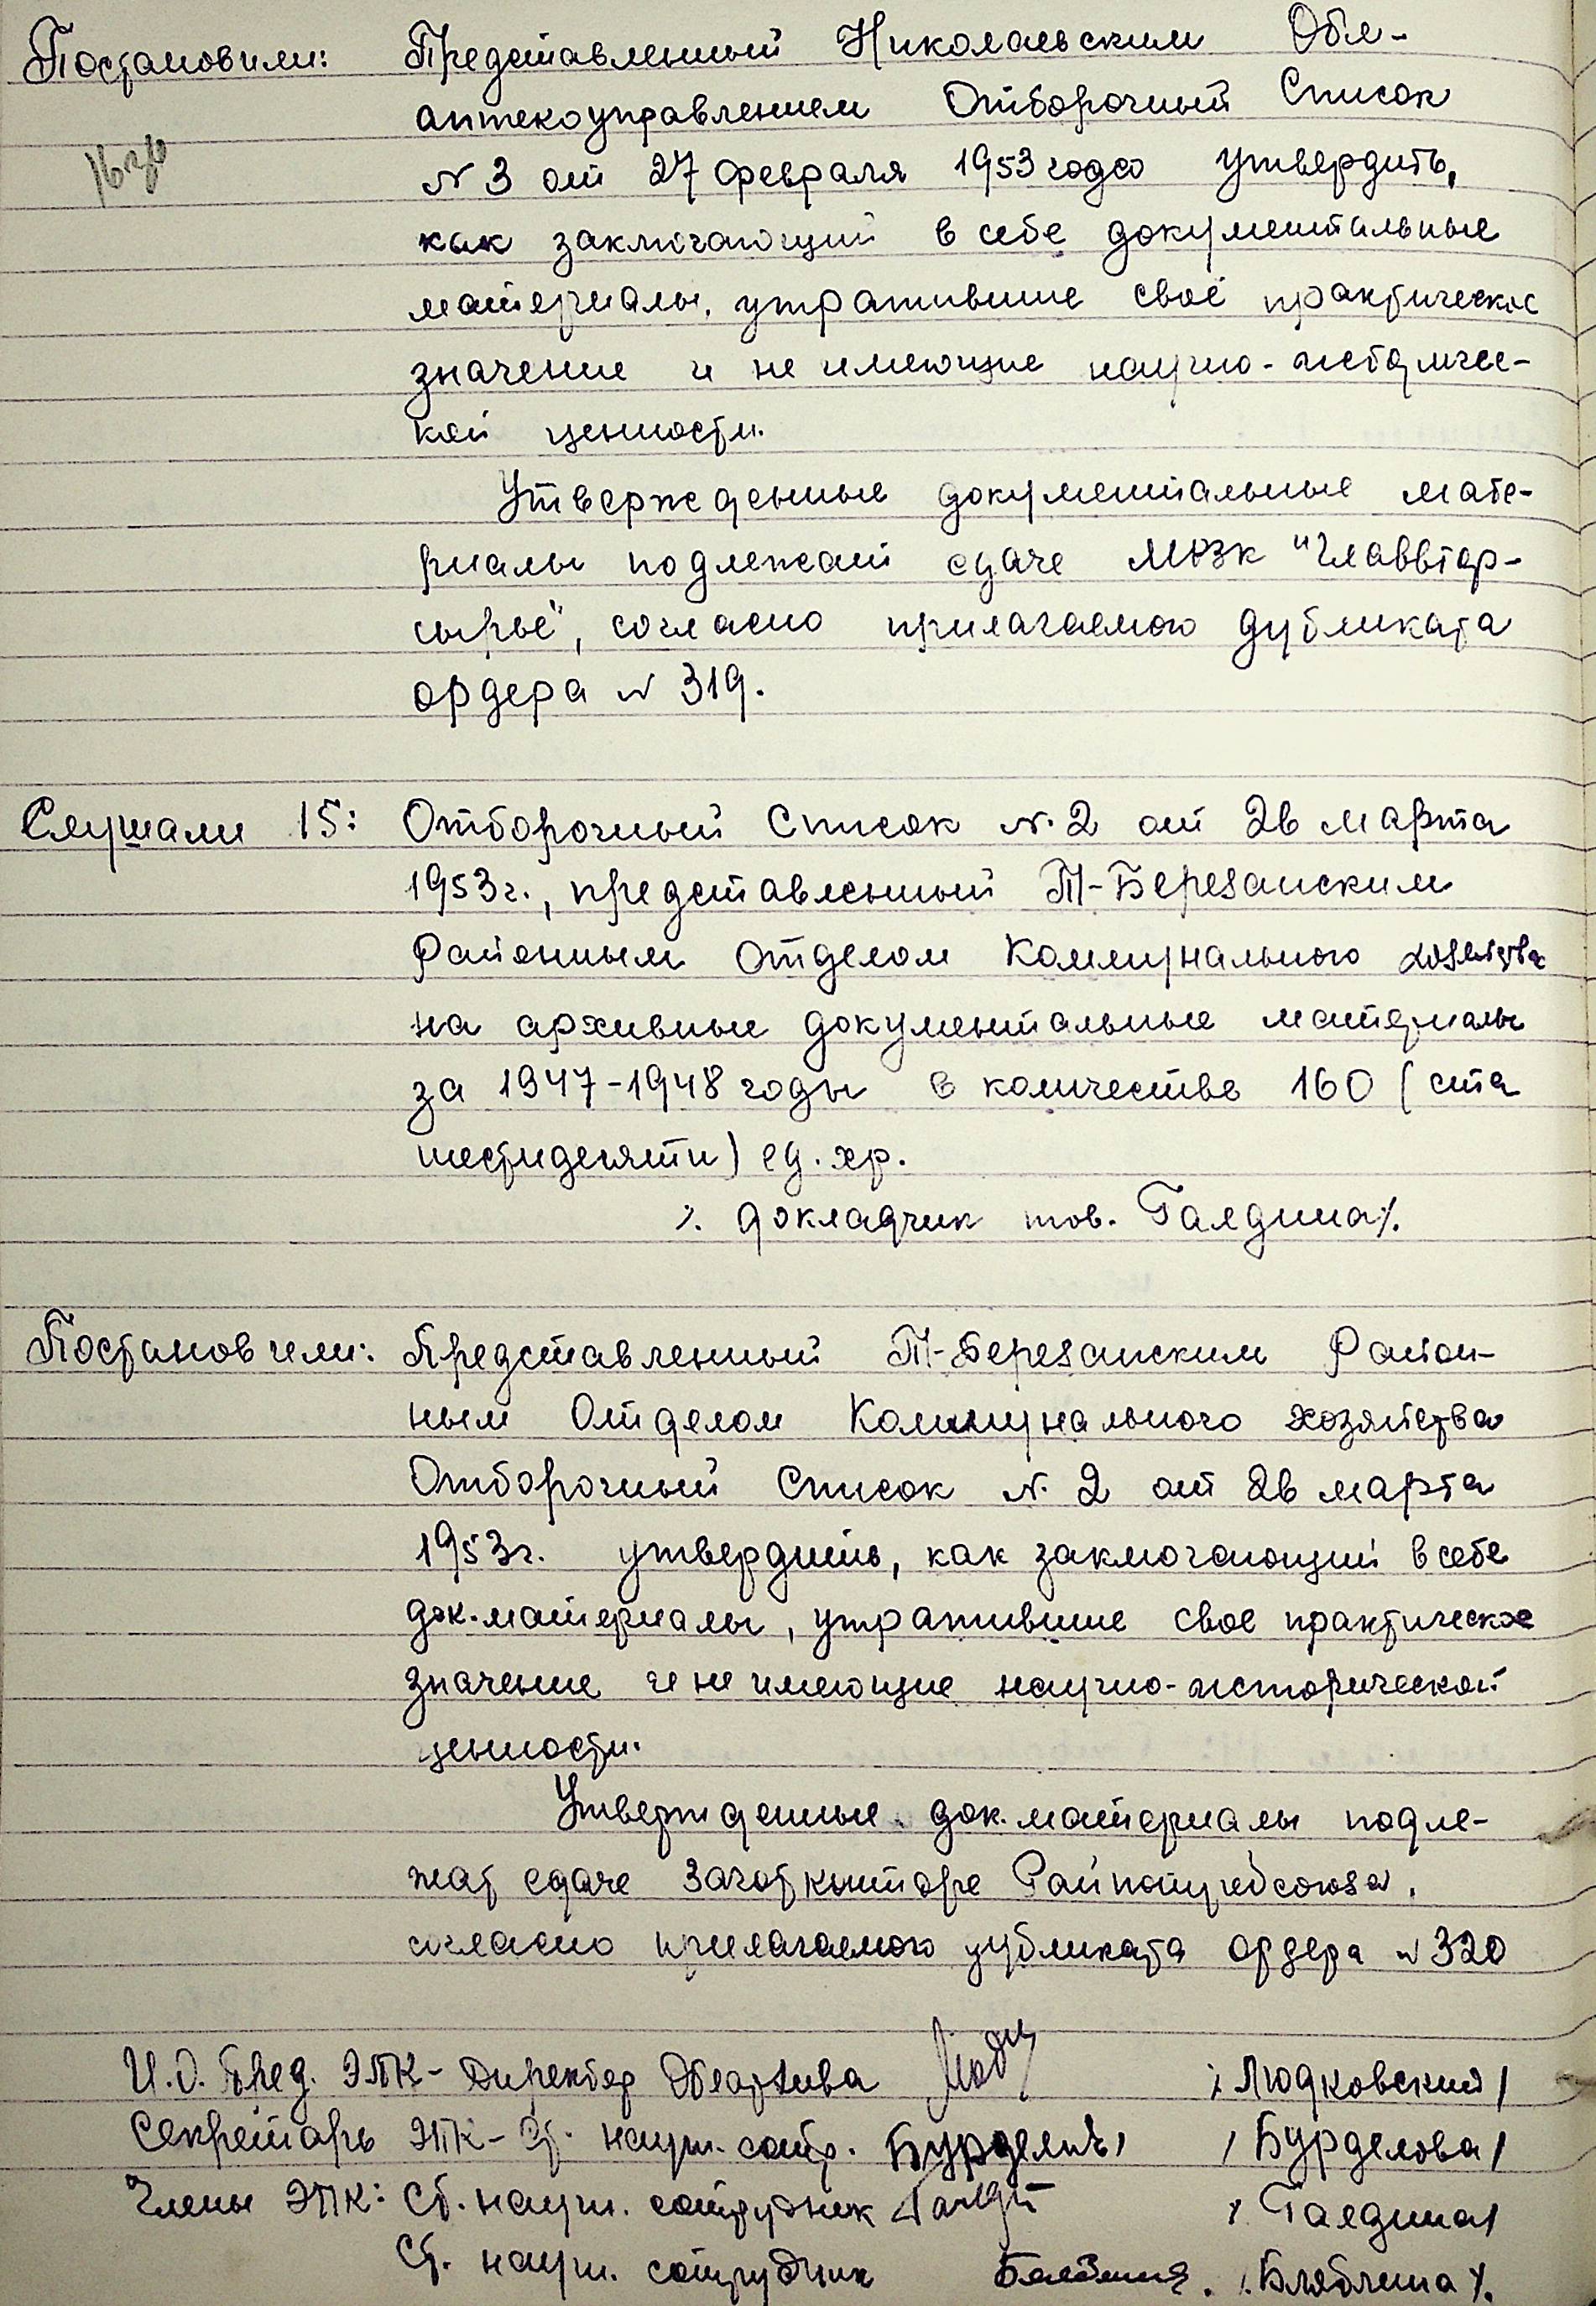 Постановили: Представленный Николаевским Обл-
аптекоуправлением Отборочный Список
№ 3 от 27 февраля 1953 года утвердить,
как заключающий в себе документальные
материалы, утратившие своё практическое
значение и не имеющие научно-историчес-
кой ценности.
Утвержденные документальные мате-
риалы подлежат сдаче МОЗК "Главвтор-
сырьё", согласно прилагаемого дубликата
ордера № 319.
Слушали 15: Отборочный Список № 2 от 26 марта
1953г., представленный Т-Березанским
Районным Отделом Коммунального хозяйства
на архивные документальные материалы
за 1947-1948 годы в количестве 160 (ста
шестидесяти) ед. хр.
/. докладчик тов. Галдина/.
Постановили: Представленный Т-Березанским Район-
ным Отделом Коммунального хозяйства
Отборочный Список № 2 от 26 марта
1953г. утвердить, как заключающий в себе
док.материалы, утратившие свое практическое
значение и не имеющие научно-исторической
ценности.
Утвержденные док.материалы подле-
жат сдаче Заготконторе Райпотребсоюза,
согласно прилагаемого дубликата ордера № 320
И.О. Пред. ЭПК - Директор Облархива /Людковский/
Секретарь ЭПК - Ст. научн. сотр. /Бурделова/
Члены ЭПК: Ст. научн. сотрудник /Галдина/
Ст. научн. сотрудник /.Бляблина/.